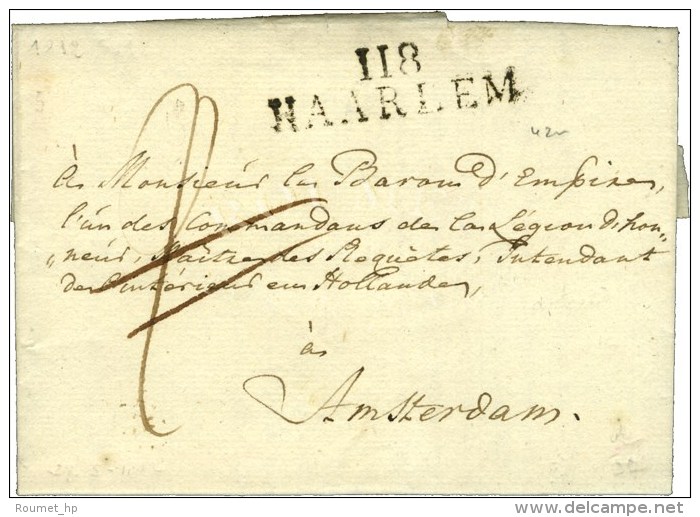 1812
118
HAARLEM
à Monsieur le Baron d'Empire,
l'un des Commandans de la Légion d'hon„
„neur, Maître des Requêtes, Intendant
de l'intérieur en Hollande,
à
Amsterdam.
Roumet_hp
delcampe.net